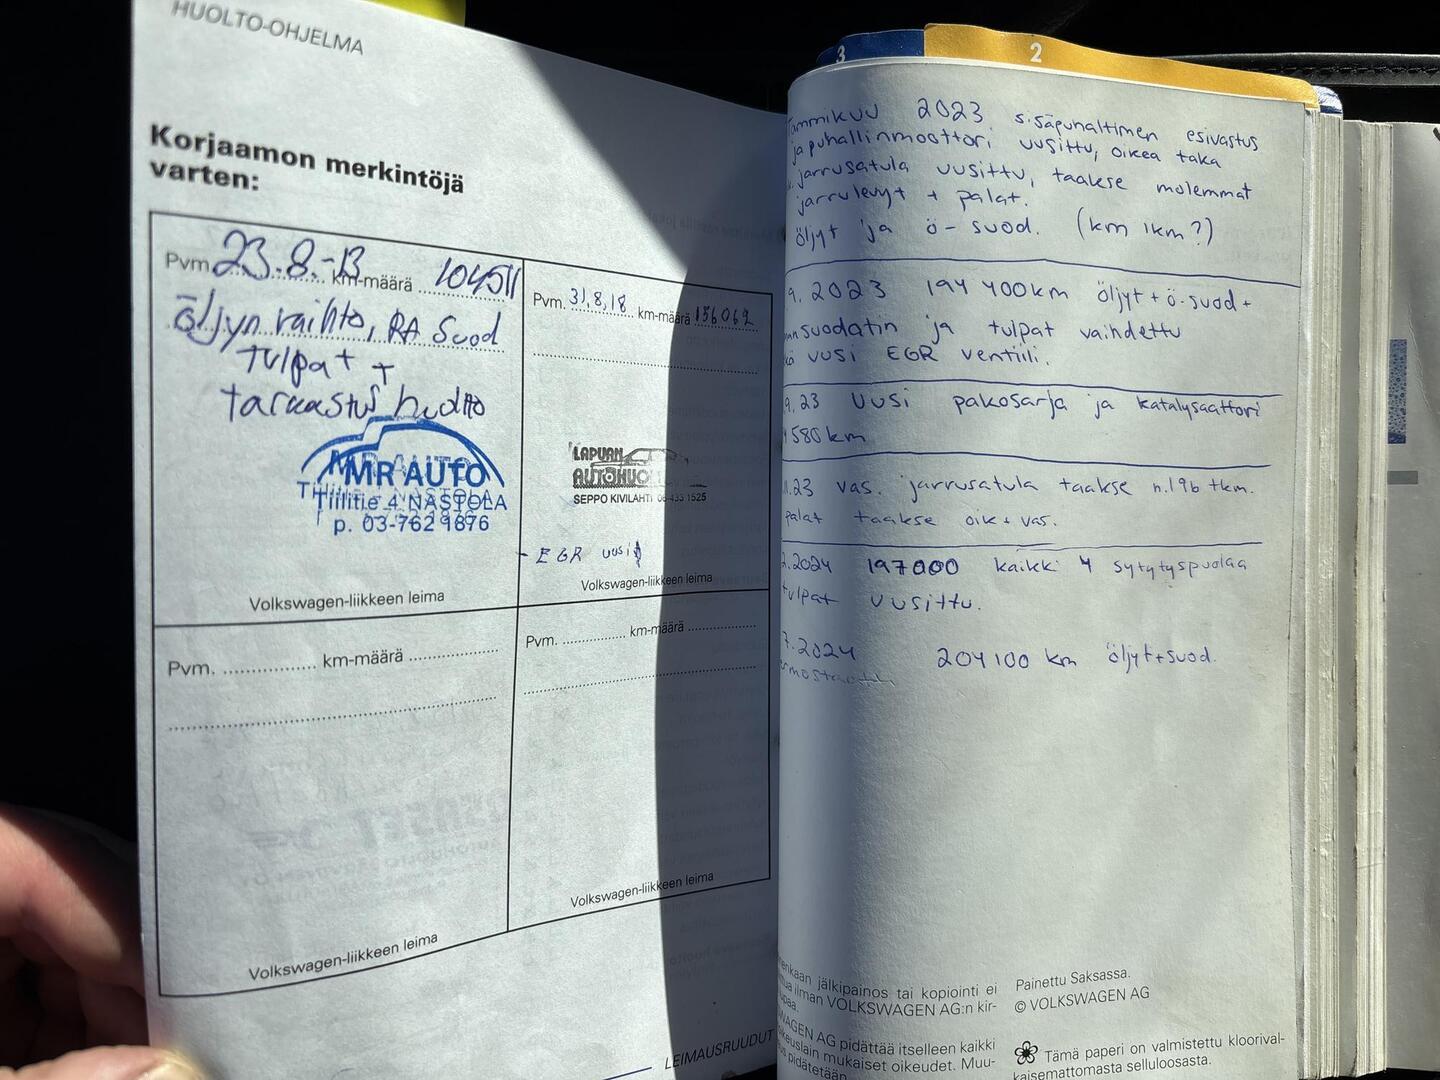 HUOLTO-OHJELMA
Korjaamon merkintöjä
varten:
Pvm. 23.8.-13 km-määrä 104511
öljyn vaihto, RA Suod
tulpat +
tarkastus huolto
MR AUTO
Tiilitie 4 NASTOLA
p. 03-762 1876
Volkswagen-liikkeen leima
Pvm. 31,8,18 km-määrä 156062
LAPUAN
AUTOHUO
SEPPO KIVILAHTI 06-433 1525
- EGR uusi
Volkswagen-liikkeen leima
Pvm. km-määrä
Volkswagen-liikkeen leima
Pvm. km-määrä
Volkswagen-liikkeen leima
LEIMAUSRUUDUT
3
2
Tammikuu 2023 sisäpuhaltimen esivastus
ja puhallinmoottori uusittu, oikea taka
jarrusatula uusittu, taakse molemmat
jarrulevyt + palat.
öljyt ja ö-suod. (km 1km?)
9. 2023 194 400km öljyt + ö-suod +
suodatin ja tulpat vaihdettu
uusi EGR venttiili.
9.23 Uusi pakosarja ja katalysaattori
580km
.23 vas. jarrusatula taakse n.196 tkm.
palat taakse oik + vas.
2.2024 197000 kaikki 4 sytytyspuolaa
tulpat uusittu.
7.2024 204100 km öljyt+suod.
enkaan jälkipainos tai kopiointi ei
ilman VOLKSWAGEN AG:n kir-
WAGEN AG pidättää itselleen kaikki
keuslain mukaiset oikeudet. Muu-
pidätetään.
Painettu Saksassa.
© VOLKSWAGEN AG
Tämä paperi on valmistettu kloorival-
kaisemattomasta selluloosasta.